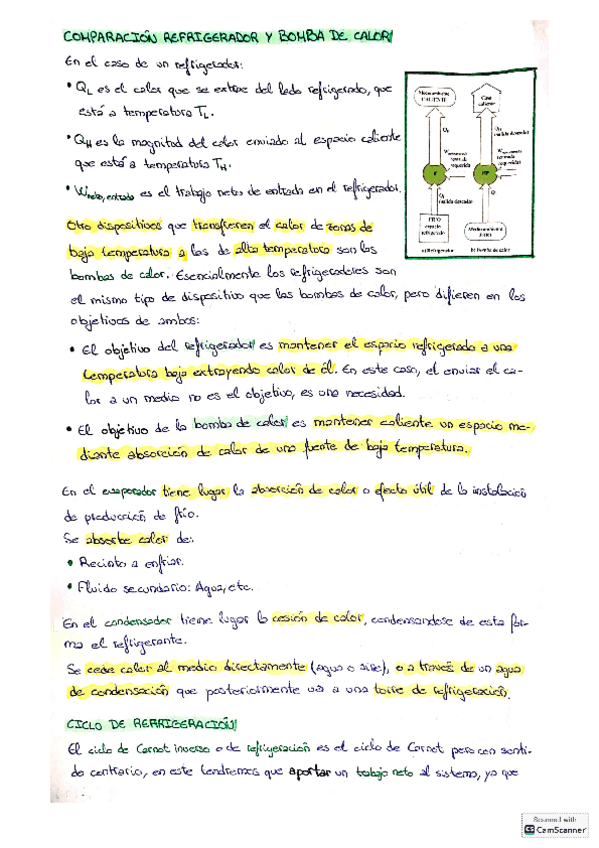 COMPARACIÓN REFRIGERADOR Y BOMBA DE CALOR
En el caso de un refrigerador:
• QL es el calor que se extrae del lado refrigerado, que
está a temperatura TL.
• QH es la magnitud del calor enviado al espacio caliente
que está a temperatura TH.
• Wneto, entrada es el trabajo neto de entrada en el refrigerador.
Otro dispositivos que transfieren el calor de zonas de
baja temperatura a las de alta temperatura son las
bombas de calor. Esencialmente los refrigeradores son
el mismo tipo de dispositivo que las bombas de calor, pero difieren en los
objetivos de ambos:
• El objetivo del refrigerador es mantener el espacio refrigerado a una
temperatura baja extrayendo calor de él. En este caso, el enviar el ca-
lor a un medio no es el objetivo, es una necesidad.
• El objetivo de la bomba de calor es mantener caliente un espacio me-
diante absorción de calor de una fuente de baja temperatura.
En el evaporador tiene lugar la absorción de calor o efecto útil de la instalación
de producción de frío.
Se absorbe calor de:
• Recinto a enfriar.
• Fluido secundario: Agua, etc.
En el condensador tiene lugar la cesión de calor, condensandose de esta for-
ma el refrigerante.
Se cede calor al medio directamente (agua o aire), o a través de un agua
de condensación que posteriormente va a una torre de refrigeración.
CICLO DE REFRIGERACIÓN
El ciclo de Carnot inverso o de refrigeración es el ciclo de Carnot pero con senti-
do contrario, en este tendremos que aportar un trabajo neto al sistema, ya que
Medio ambiente
CALIENTE
Casa
caliente
QH
salida deseada
R
HP
QL
salida deseada
espacio
refrigerado
Medio ambiente
a) Refrigerador
b) Bomba de calor
Scanned with
CS CamScanner